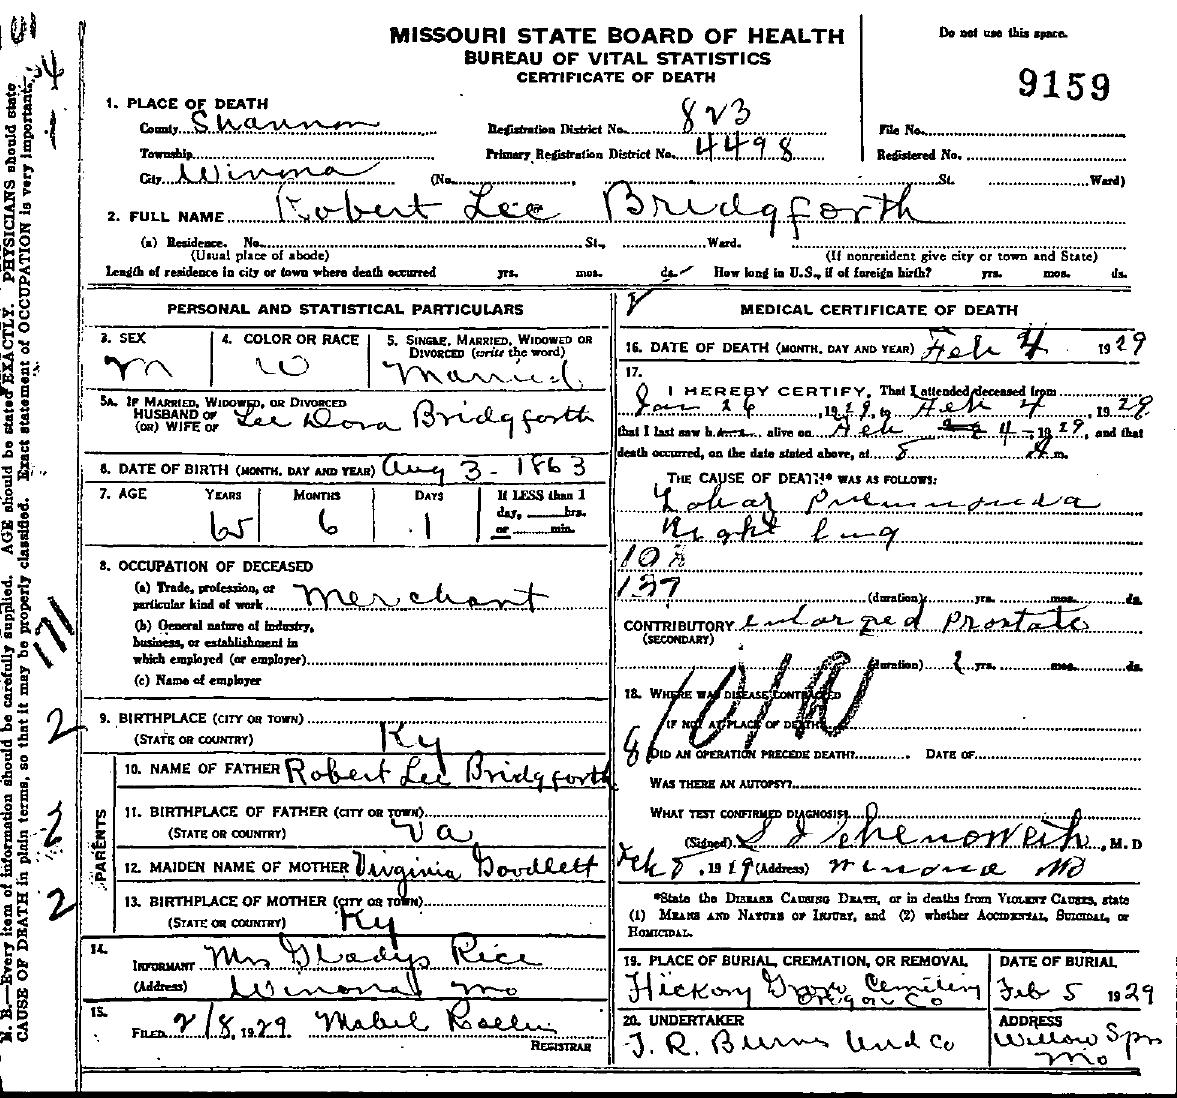 MISSOURI STATE BOARD OF HEALTH
BUREAU OF VITAL STATISTICS
CERTIFICATE OF DEATH
Do not use this space.
9159
1. PLACE OF DEATH
County Shannon Registration District No. 823 File No.
Township Primary Registration District No. 4498 Registered No.
City Winona (No. , St. Ward)
2. FULL NAME Robert Lee Bridgforth
(a) Residence. No. St., Ward.
(Usual place of abode) (If nonresident give city or town and State)
Length of residence in city or town where death occurred yrs. mos. ds. How long in U.S., if of foreign birth? yrs. mos. ds.
PERSONAL AND STATISTICAL PARTICULARS
3. SEX
M
4. COLOR OR RACE
W
5. SINGLE, MARRIED, WIDOWED OR
DIVORCED (write the word)
Married
5A. IF MARRIED, WIDOWED, OR DIVORCED
HUSBAND OF
(OR) WIFE OF Lee Dora Bridgforth
6. DATE OF BIRTH (MONTH, DAY AND YEAR) Aug 3 - 1863
7. AGE YEARS MONTHS DAYS If LESS than 1
day, hrs.
or min.
65 6 1
8. OCCUPATION OF DECEASED
(a) Trade, profession, or
particular kind of work Merchant
(b) General nature of industry,
business, or establishment in
which employed (or employer)
(c) Name of employer
9. BIRTHPLACE (CITY OR TOWN)
(STATE OR COUNTRY) Ky
PARENTS
10. NAME OF FATHER Robert Lee Bridgforth
11. BIRTHPLACE OF FATHER (CITY OR TOWN)
(STATE OR COUNTRY) Va
12. MAIDEN NAME OF MOTHER Virginia Goodlett
13. BIRTHPLACE OF MOTHER (CITY OR TOWN)
(STATE OR COUNTRY) Ky
14.
INFORMANT Mrs Gladys Rice
(Address) Winona Mo
15.
FILED 2/8, 1929 Mabel
REGISTRAR
MEDICAL CERTIFICATE OF DEATH
16. DATE OF DEATH (MONTH, DAY AND YEAR) Feb 4 1929
17.
I HEREBY CERTIFY, That I attended deceased from
Jan 26, 1929, to Feb 4, 1929
that I last saw h alive on Feb 4 - 1929, and that
death occurred, on the date stated above, at 8 A m.
THE CAUSE OF DEATH* WAS AS FOLLOWS:
Lobar Pneumonia
Right lung
108
137
(duration) yrs. mos. ds.
CONTRIBUTORY enlarged Prostate
(SECONDARY)
(duration) 2 yrs. mos. ds.
18. WHERE WAS DISEASE CONTRACTED
IF NOT AT PLACE OF DEATH?
DID AN OPERATION PRECEDE DEATH? DATE OF
WAS THERE AN AUTOPSY?
WHAT TEST CONFIRMED DIAGNOSIS?
(Signed) Chenoweth, M. D
Feb 8, 1929 (Address) Winona Mo
*State the DISEASE CAUSING DEATH, or in deaths from VIOLENT CAUSES, state
(1) MEANS AND NATURE OF INJURY, and (2) whether ACCIDENTAL, SUICIDAL, or
HOMICIDAL.
19. PLACE OF BURIAL, CREMATION, OR REMOVAL
Hickory Grove Cemetery
Oregon Co
DATE OF BURIAL
Feb 5 1929
20. UNDERTAKER
J. R. Burns Und Co
ADDRESS
Willow Spr
Mo
N. B.—Every item of information should be carefully supplied. AGE should be stated EXACTLY. PHYSICIANS should state
CAUSE OF DEATH in plain terms, so that it may be properly classified. Exact statement of OCCUPATION is very important.
171
2
2
2